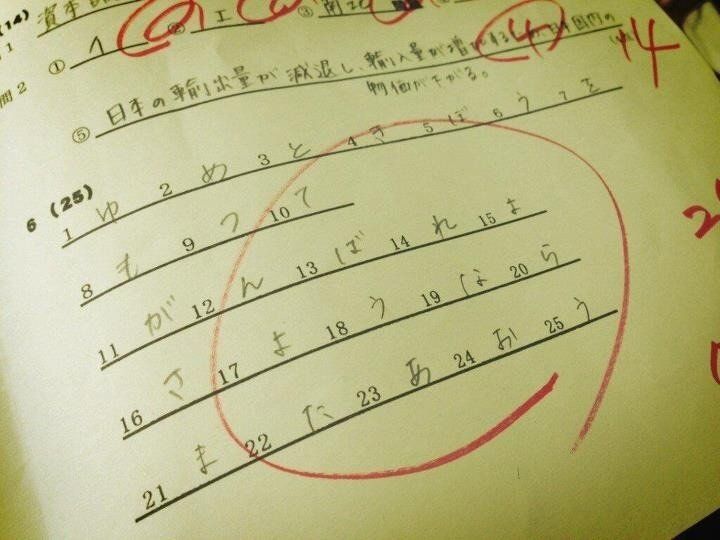 (14)
資本
問2 ① イ ② エ ③
⑤ 日本の輸出量が減退し、輸入量が増加
物価が下がる。
4
6 (25)
1 ゆ 2 め 3 と 4 き 5 ぼ 6 う 7 を
8 も 9 つ 10 て
11 が 12 ん 13 ば 14 れ 15 よ
16 さ 17 よ 18 う 19 な 20 ら
21 ま 22 た 23 あ 24 お 25 う